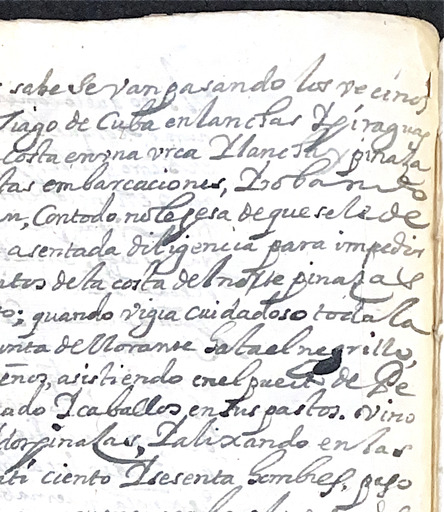 sabe se van pasando los vecinos
tiago de Cuba en lanchas y piraguas
costa en vna vrca y lancha y pinaza
tas embarcaciones, y robando
n, Con todo no le pesa de que se le de
asentada diligencia para impedir
ntos de la costa del norte pinazas
quando vigia cuidadoso toda la
unta de Morante hasta el negrillo,
enos, asistiendo en el pueito de Pe
ado y caballos en sus pastos. vino
pinazas, y alixando en las
nti ciento y sesenta hombres, paso